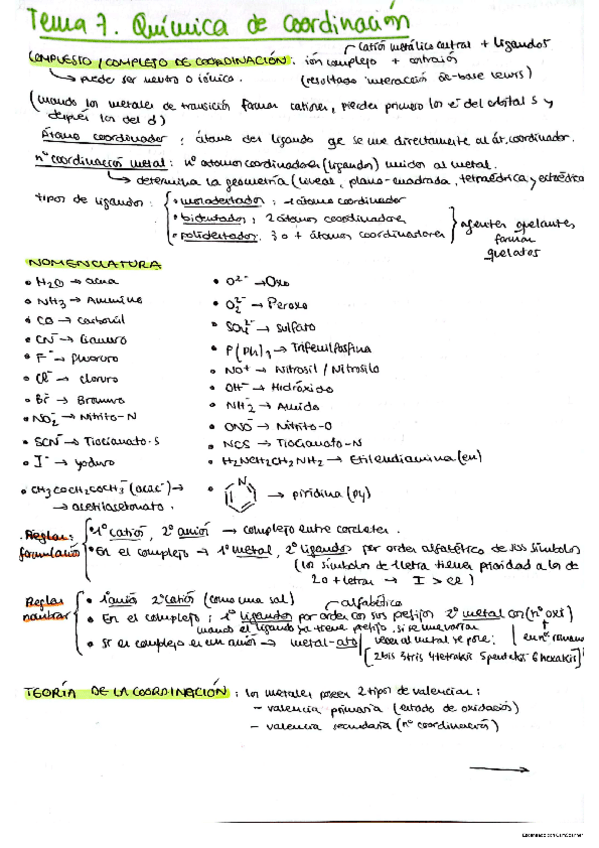 Tema 7. Química de coordinación
catión metálico central + ligandos
COMPUESTO / COMPLEJO DE COORDINACIÓN: ión complejo + contraión
puede ser neutro o iónico. (resultado interacción ác-base Lewis)
(cuando los metales de transición forman cationes, pierden primero los e⁻ del orbital s y
después los del d)
Átomo coordinador: átomo del ligando qe se une directamente al át. coordinador.
nº coordinación metal: nº átomos coordinadores (ligandos) unidos al metal.
→ determina la geometría (lineal, plano-cuadrada, tetraédrica y octaédrica
tipos de ligandos: • monodentados: 1 átomo coordinador
• bidentados; 2 átomos coordinadores
• polidentados: 3 o + átomos coordinadores
agentes quelantes,
forman
quelatos
NOMENCLATURA
• H₂O → acua
• NH₃ → Ammina
• CO → carbonil
• CN⁻ → Cianuro
• F⁻ → fluoruro
• Cl⁻ → cloruro
• Br⁻ → Bromuro
• NO₂⁻ → Nitrito-N
• SCN⁻ → Tiocianato-S
• I⁻ → yoduro
• CH₃COCH₂COCH₃⁻ (acac⁻) →
→ acetilacetonato.
• O²⁻ → Oxo
• O₂²⁻ → Peroxo
• SO₄²⁻ → sulfato
• P(Ph)₃ → Trifenilfosfina
• NO⁺ → Nitrosil / Nitrosilo
• OH⁻ → Hidróxido
• NH₂⁻ → Amido
• ONO⁻ → Nitrito-O
• NCS → Tiocianato-N
• H₂NCH₂CH₂NH₂ → Etilendiamina (en)
• N → piridina (py)
Reglas formulación
• 1º catión, 2º anión → complejo entre corchetes.
• En el complejo → 1º metal, 2º ligandos por orden alfabético de sus símbolos
(los símbolos de 1 letra tienen prioridad a los de
2 o + letras → I > Cl)
Reglas nombrar
• 1º anión 2º catión (como una sal)
alfabético
• En el complejo; 1º ligandos por orden con sus prefijos 2º metal con (nº oxi)
cuando el ligando ya tiene prefijo.
• Si el complejo es un anión → metal-ato
[2 bis 3 tris 4 tetrakis 5 pentakis 6 hexakis]
TEORÍA DE LA COORDINACIÓN: los metales poseen 2 tipos de valencias:
- valencia primaria (estado de oxidación)
- valencia secundaria (nº coordinación)
Escaneado con CamScanner